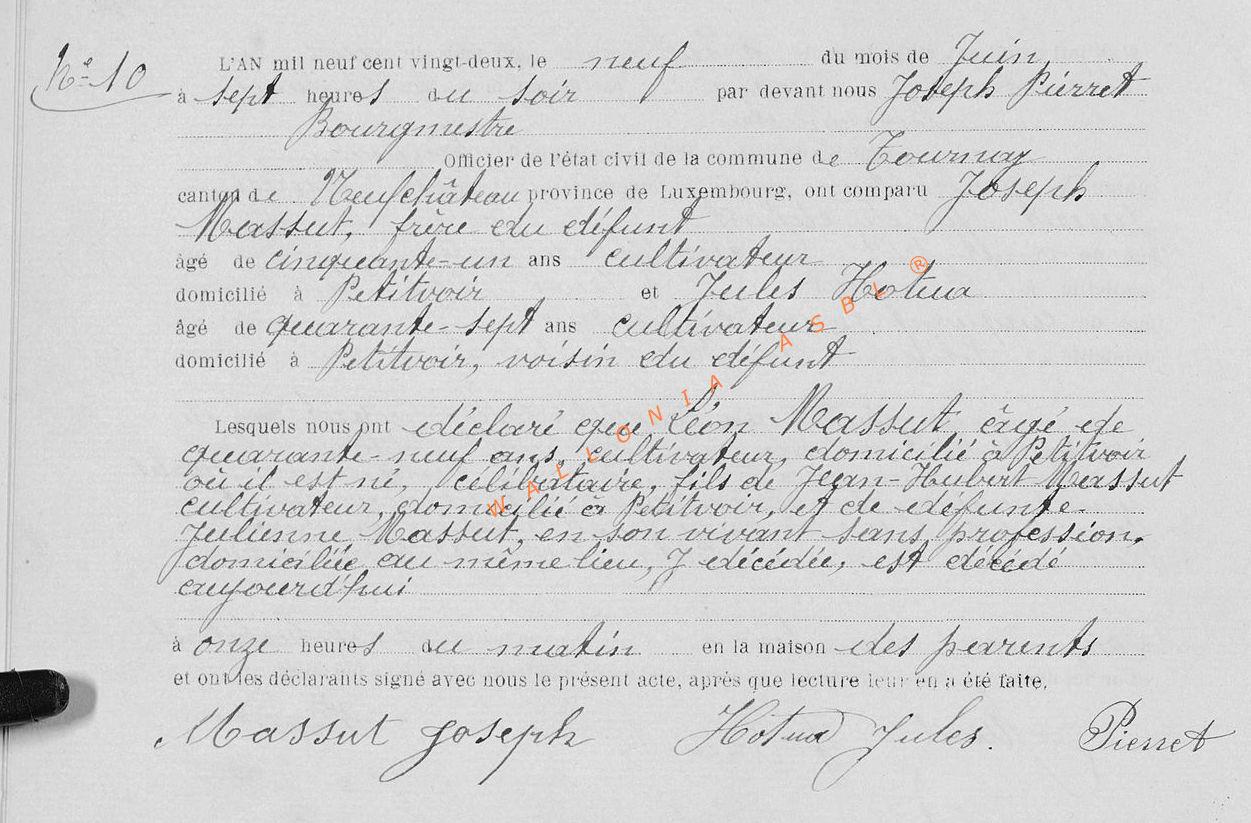 Nº 10
L'AN mil neuf cent vingt-deux, le neuf du mois de Juin
à sept heures du soir par devant nous Joseph Pierret
Bourgmestre
Officier de l'état civil de la commune de Tournay
canton de Neufchâteau province de Luxembourg, ont comparu Joseph
Massut, frère du défunt
âgé de cinquante-un ans cultivateur
domicilié à Petitvoir et Jules Hotua
âgé de quarante-sept ans cultivateur
domicilié à Petitvoir, voisin du défunt
Lesquels nous ont déclaré que Léon Massut, âgé de
quarante-neuf ans, cultivateur, domicilié à Petitvoir
où il est né, célibataire, fils de Jean-Hubert Massut
cultivateur, domicilié à Petitvoir, et de défunte
Julienne Massut, en son vivant sans profession,
domiciliée au même lieu, y décédée, est décédé
aujourd'hui
à onze heures du matin en la maison des parents
et ont les déclarants signé avec nous le présent acte, après que lecture leur en a été faite.
Massut Joseph Hotua Jules. Pierret
WALLONIA ASBL ®